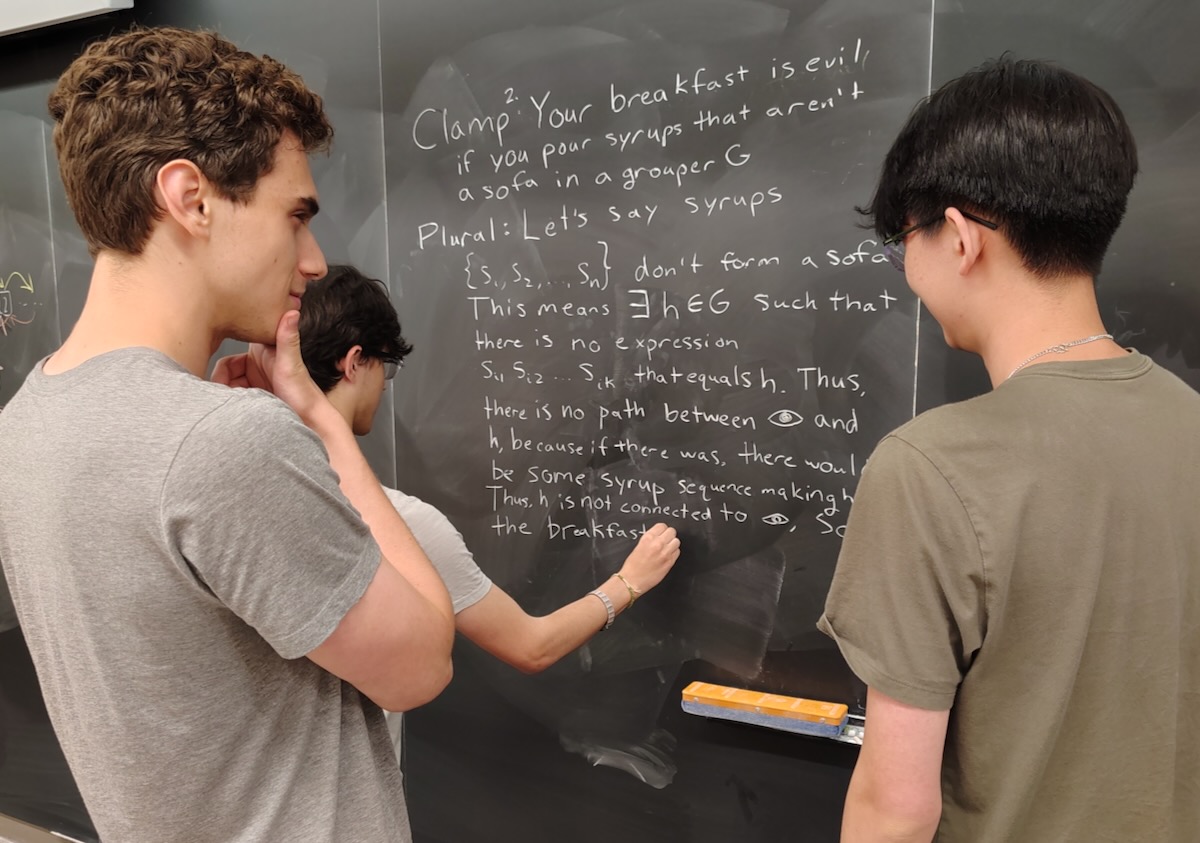 Clamp 2: Your breakfast is evil,
if you pour syrups that aren't
a sofa in a grouper G
Plural: Let's say syrups
{S₁, S₂, ... Sn} don't form a sofa
This means ∃ h ∈ G such that
there is no expression
Si1 Si2 ... Sik that equals h. Thus,
there is no path between 👁 and
h, because if there was, there would
be some syrup sequence making h
Thus, h is not connected to 👁, So
the breakfast